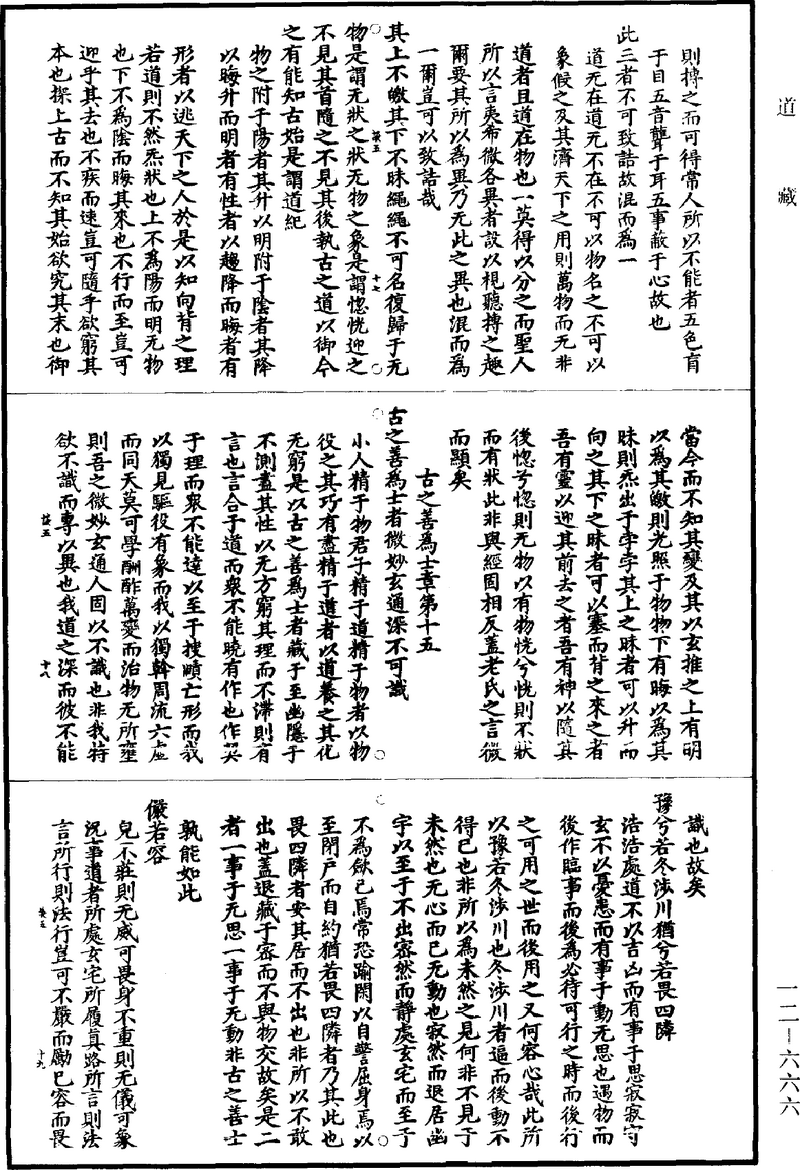 道藏
則搏之而可得常人所以不能者五色盲
于目五音聾于耳五事蔽于心故也
此三者不可致詰故混而為一
道无在道无不在不可以物名之不可以
象候之及其濟天下之用則萬物而无非
道者且道在物也一莫得以分之而聖人
所以言夷希微各異者設以視聽摶之趣
爾要其所以為異乃无此之異也混而為
一爾豈可以致詰哉
其上不皦其下不昧繩繩不可名復歸于无
物是謂无狀之狀无物之象是謂惚恍迎之
談五
十七
不見其首隨之不見其後執古之道以御今
之有能知古始是謂道紀
物之附于陽者其升以明附于陰者其降
以晦升而明者有性者以趨降而晦者有
形者以逃天下之人於是以知向背之理
若道則不然炁狀也上不為陽而明无物
也下不為陰而晦其來也不行而至豈可
迎乎其去也不疾而速豈可隨乎欲窮其
本也探上古而不知其始欲究其末也御
當今而不知其變及其以玄推之上有明
以為其皦則光照于物物下有晦以為其
昧則炁出于孛孛其上之昧者可以升而
向之其下之昧者可以塞而背之來之者
吾有靈以迎其前去之者吾有神以隨其
後惚兮惚則无物以有物恍兮恍則不狀
而有狀此非與經固相反蓋老氏之言微
而顯矣
古之善為士章第十五
古之善為士者微妙玄通深不可識
小人精于物君子精于道精于物者以物
役之其巧有盡精于道者以道養之其化
无窮是以古之善為士者藏于至幽隱于
不測盡其性以无方窮其理而不滯則有
言也言合于道而衆不能曉有作也作契
于理而衆不能達以至于搜賾亡形而我
以獨見驅役有象而我以獨斡周流六虛
而同天莫可學酬酢萬變而治物无所壅
則吾之微妙玄通人固以不識也非我特
欲不識而專以異也我道之深而彼不能
談五
十八
識也故矣
豫兮若冬涉川猶兮若畏四隣
浩浩處道不以吉凶而有事于思寂寂守
玄不以憂患而有事于動无思也遇物而
後作臨事而後為必待可行之時而後行
之可用之世而後用之又何容心哉此所
以豫若冬涉川也冬涉川者逼而後動不
得已也非所以為未然之見何非不見于
未然也无心而已无動也寂然而退居幽
宇以至于不出窈然而靜處玄宅而至于
不為斂己焉常恐踰閑以自警屈身焉以
至閉戶而自約猶若畏四隣者乃其此也
畏四隣者安其居而不出也非所以不敢
出也蓋退藏于密而不與物交故矣是二
者一事于无思一事于无動非古之善士
孰能如此
儼若容
皃不莊則无威可畏身不重則无儀可象
況事道者所處玄宅所履真路所言則法
言所行則法行豈可不嚴而勵己容而畏
談五
十九
一二—六六六